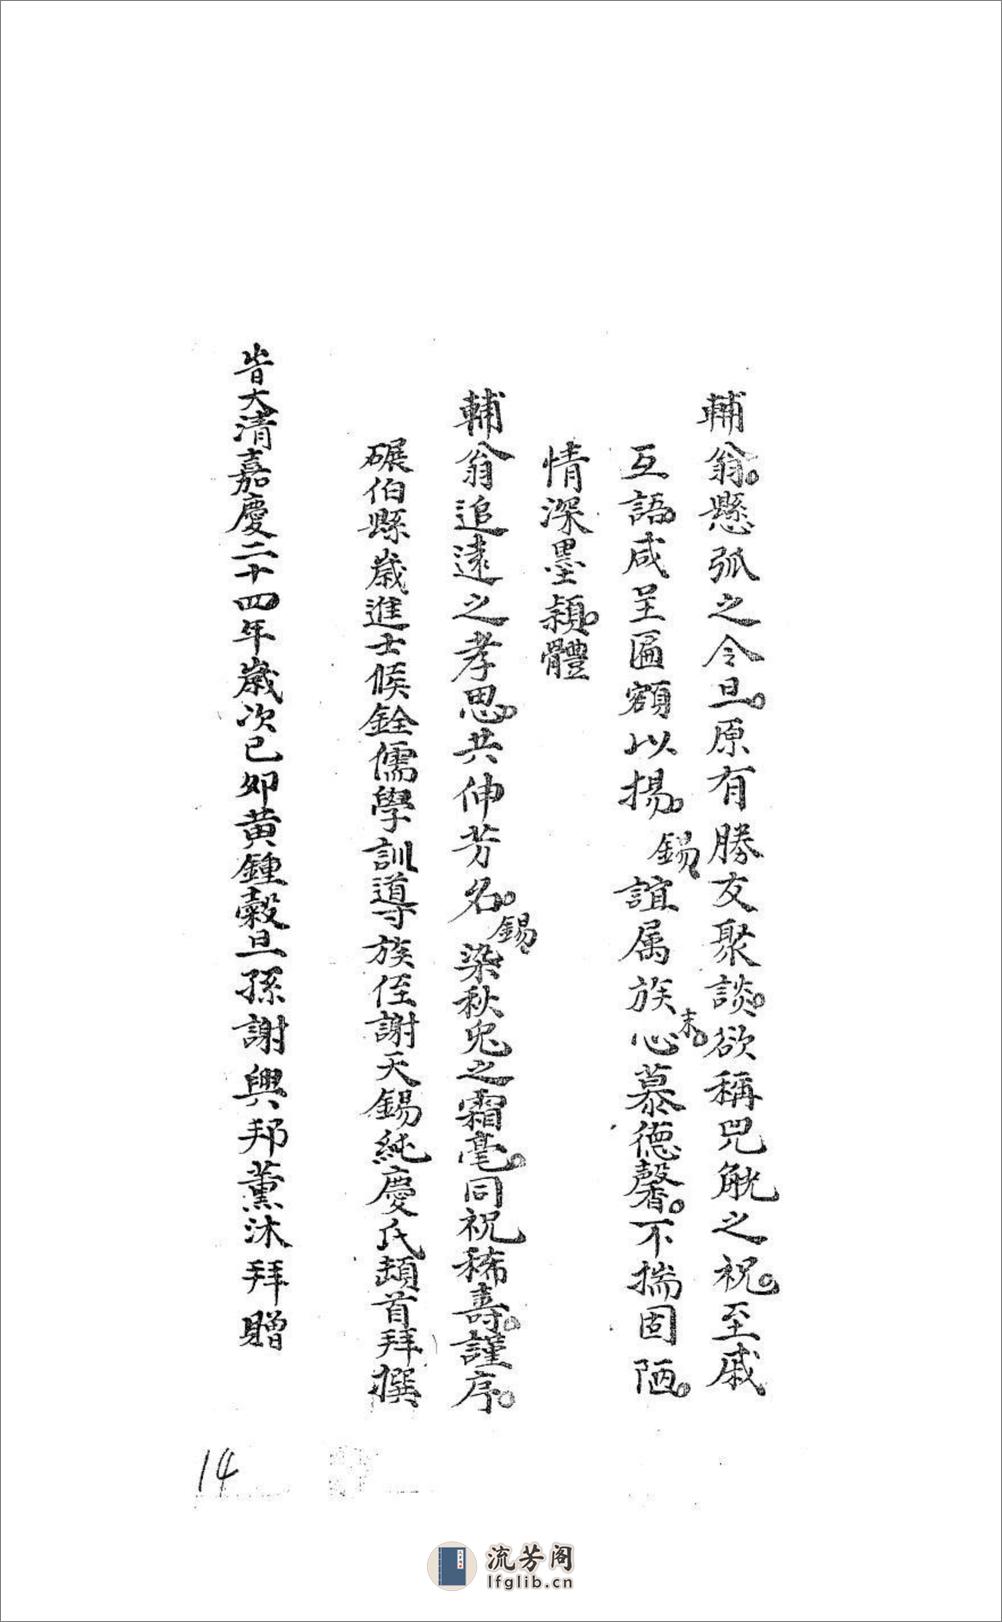 輔翁。懸弧之令旦。原有勝友聚談。欲稱兕觥之祝。至戚
互語。咸呈匾額以揚。錫誼属族末。心慕德馨。不揣固陋。
情深墨穎。體
輔翁追遠之孝思。共伸芳名。錫染秋兔之霜毫。同祝稀壽。謹序。
碾伯縣歲進士候銓儒學訓導族侄謝天錫純慶氏頓首拜撰
旹大清嘉慶二十四年歲次己卯黄鍾穀旦孫謝興邦薰沐拜贈
14
流芳阁
lfglib.cn